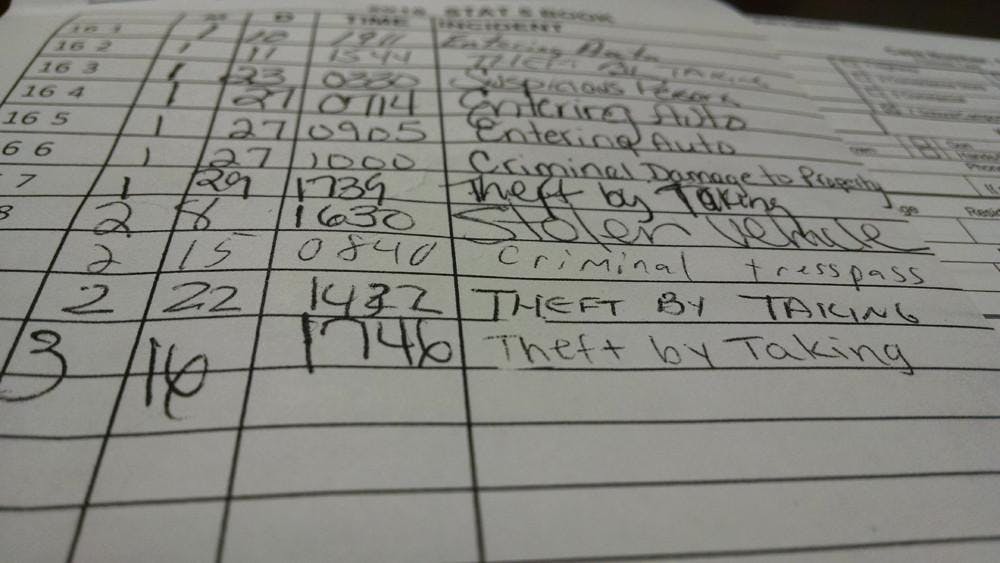 STATS BOOK
M D TIME INCIDENT
16 1 1 10 1911 Entering Auto
16 2 1 11 1544 THEFT BY TAKING
16 3 1 23 0330 Suspicious Person
16 4 1 27 0714 Entering Auto
16 5 1 27 0905 Entering Auto
6 6 1 27 1000 Criminal Damage to Property
7 1 29 1739 Theft by Taking
8 2 8 1630 Stolen Vehicle
2 15 0840 criminal tresspass
2 22 1432 THEFT BY TAKING
3 16 1746 Theft by Taking